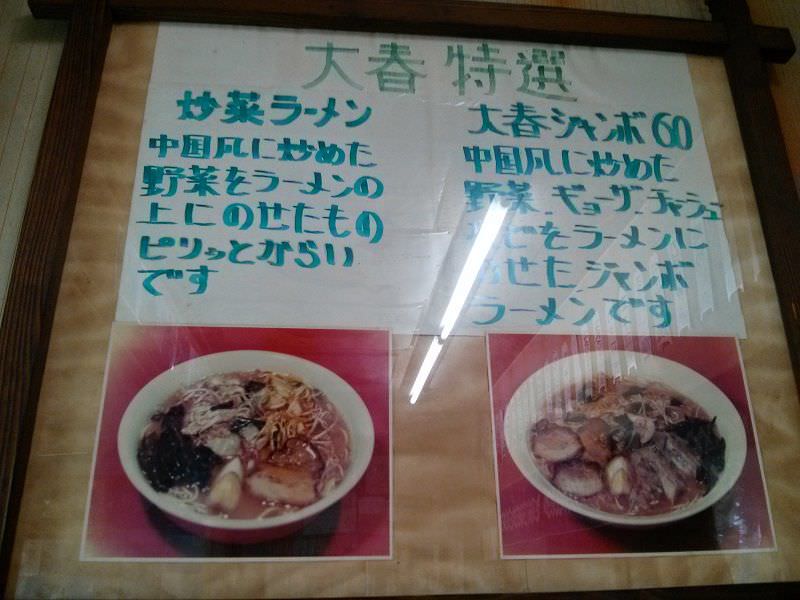 大春 特選
炒菜ラーメン
中国風に炒めた
野菜をラーメンの
上にのせたもの
ピリッとからい
です
大春ジャンボ60
中国風に炒めた
野菜、ギョーザ、チャーシュー
をラーメンに
のせたジャンボ
ラーメンです